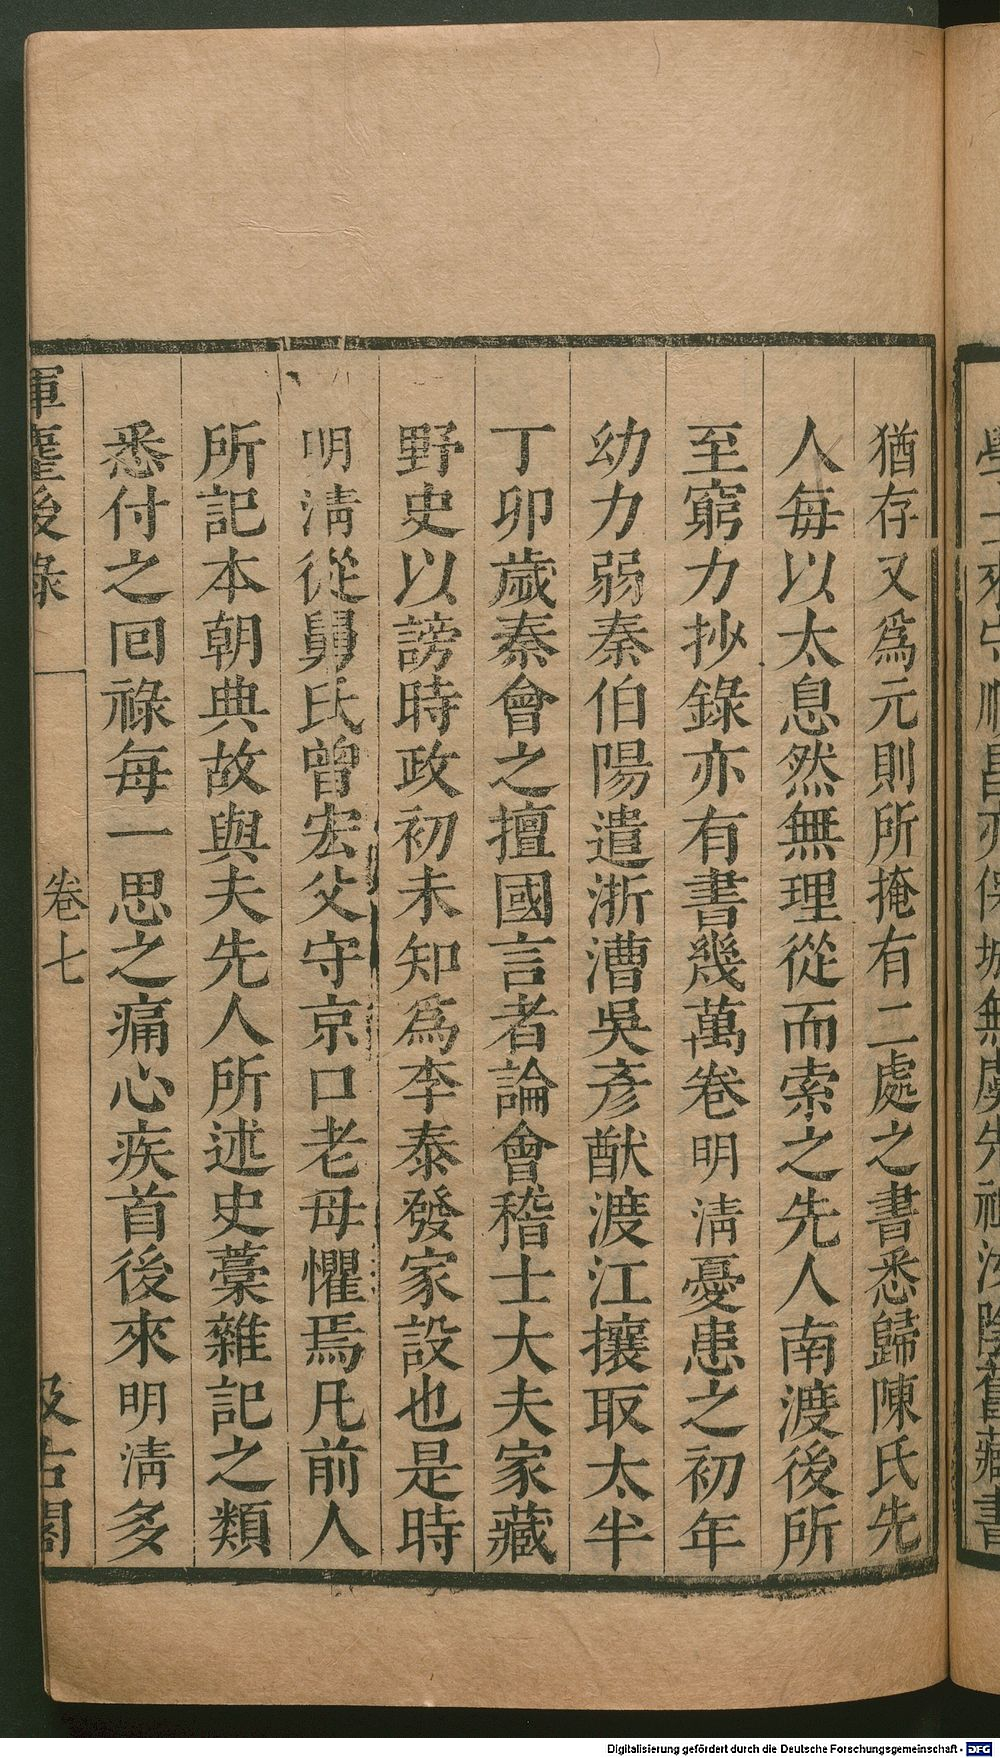 猶存又爲元則所掩有二處之書悉歸陳氏先
人每以太息然無理從而索之先人南渡後所
至窮力抄錄亦有書幾萬卷明淸憂患之初年
幼力弱秦伯陽遣浙漕吳彥猷渡江攘取太半
丁卯歲秦會之擅國言者論會稽士大夫家藏
野史以謗時政初未知爲李泰發家設也是時
明淸從舅氏曾宏父守京口老母懼焉凡前人
所記本朝典故與夫先人所述史藁雜記之類
悉付之回祿每一思之痛心疾首後來明淸多
揮麈後錄
卷七
汲古閣
Digitalisierung gefördert durch die Deutsche Forschungsgemeinschaft - DFG